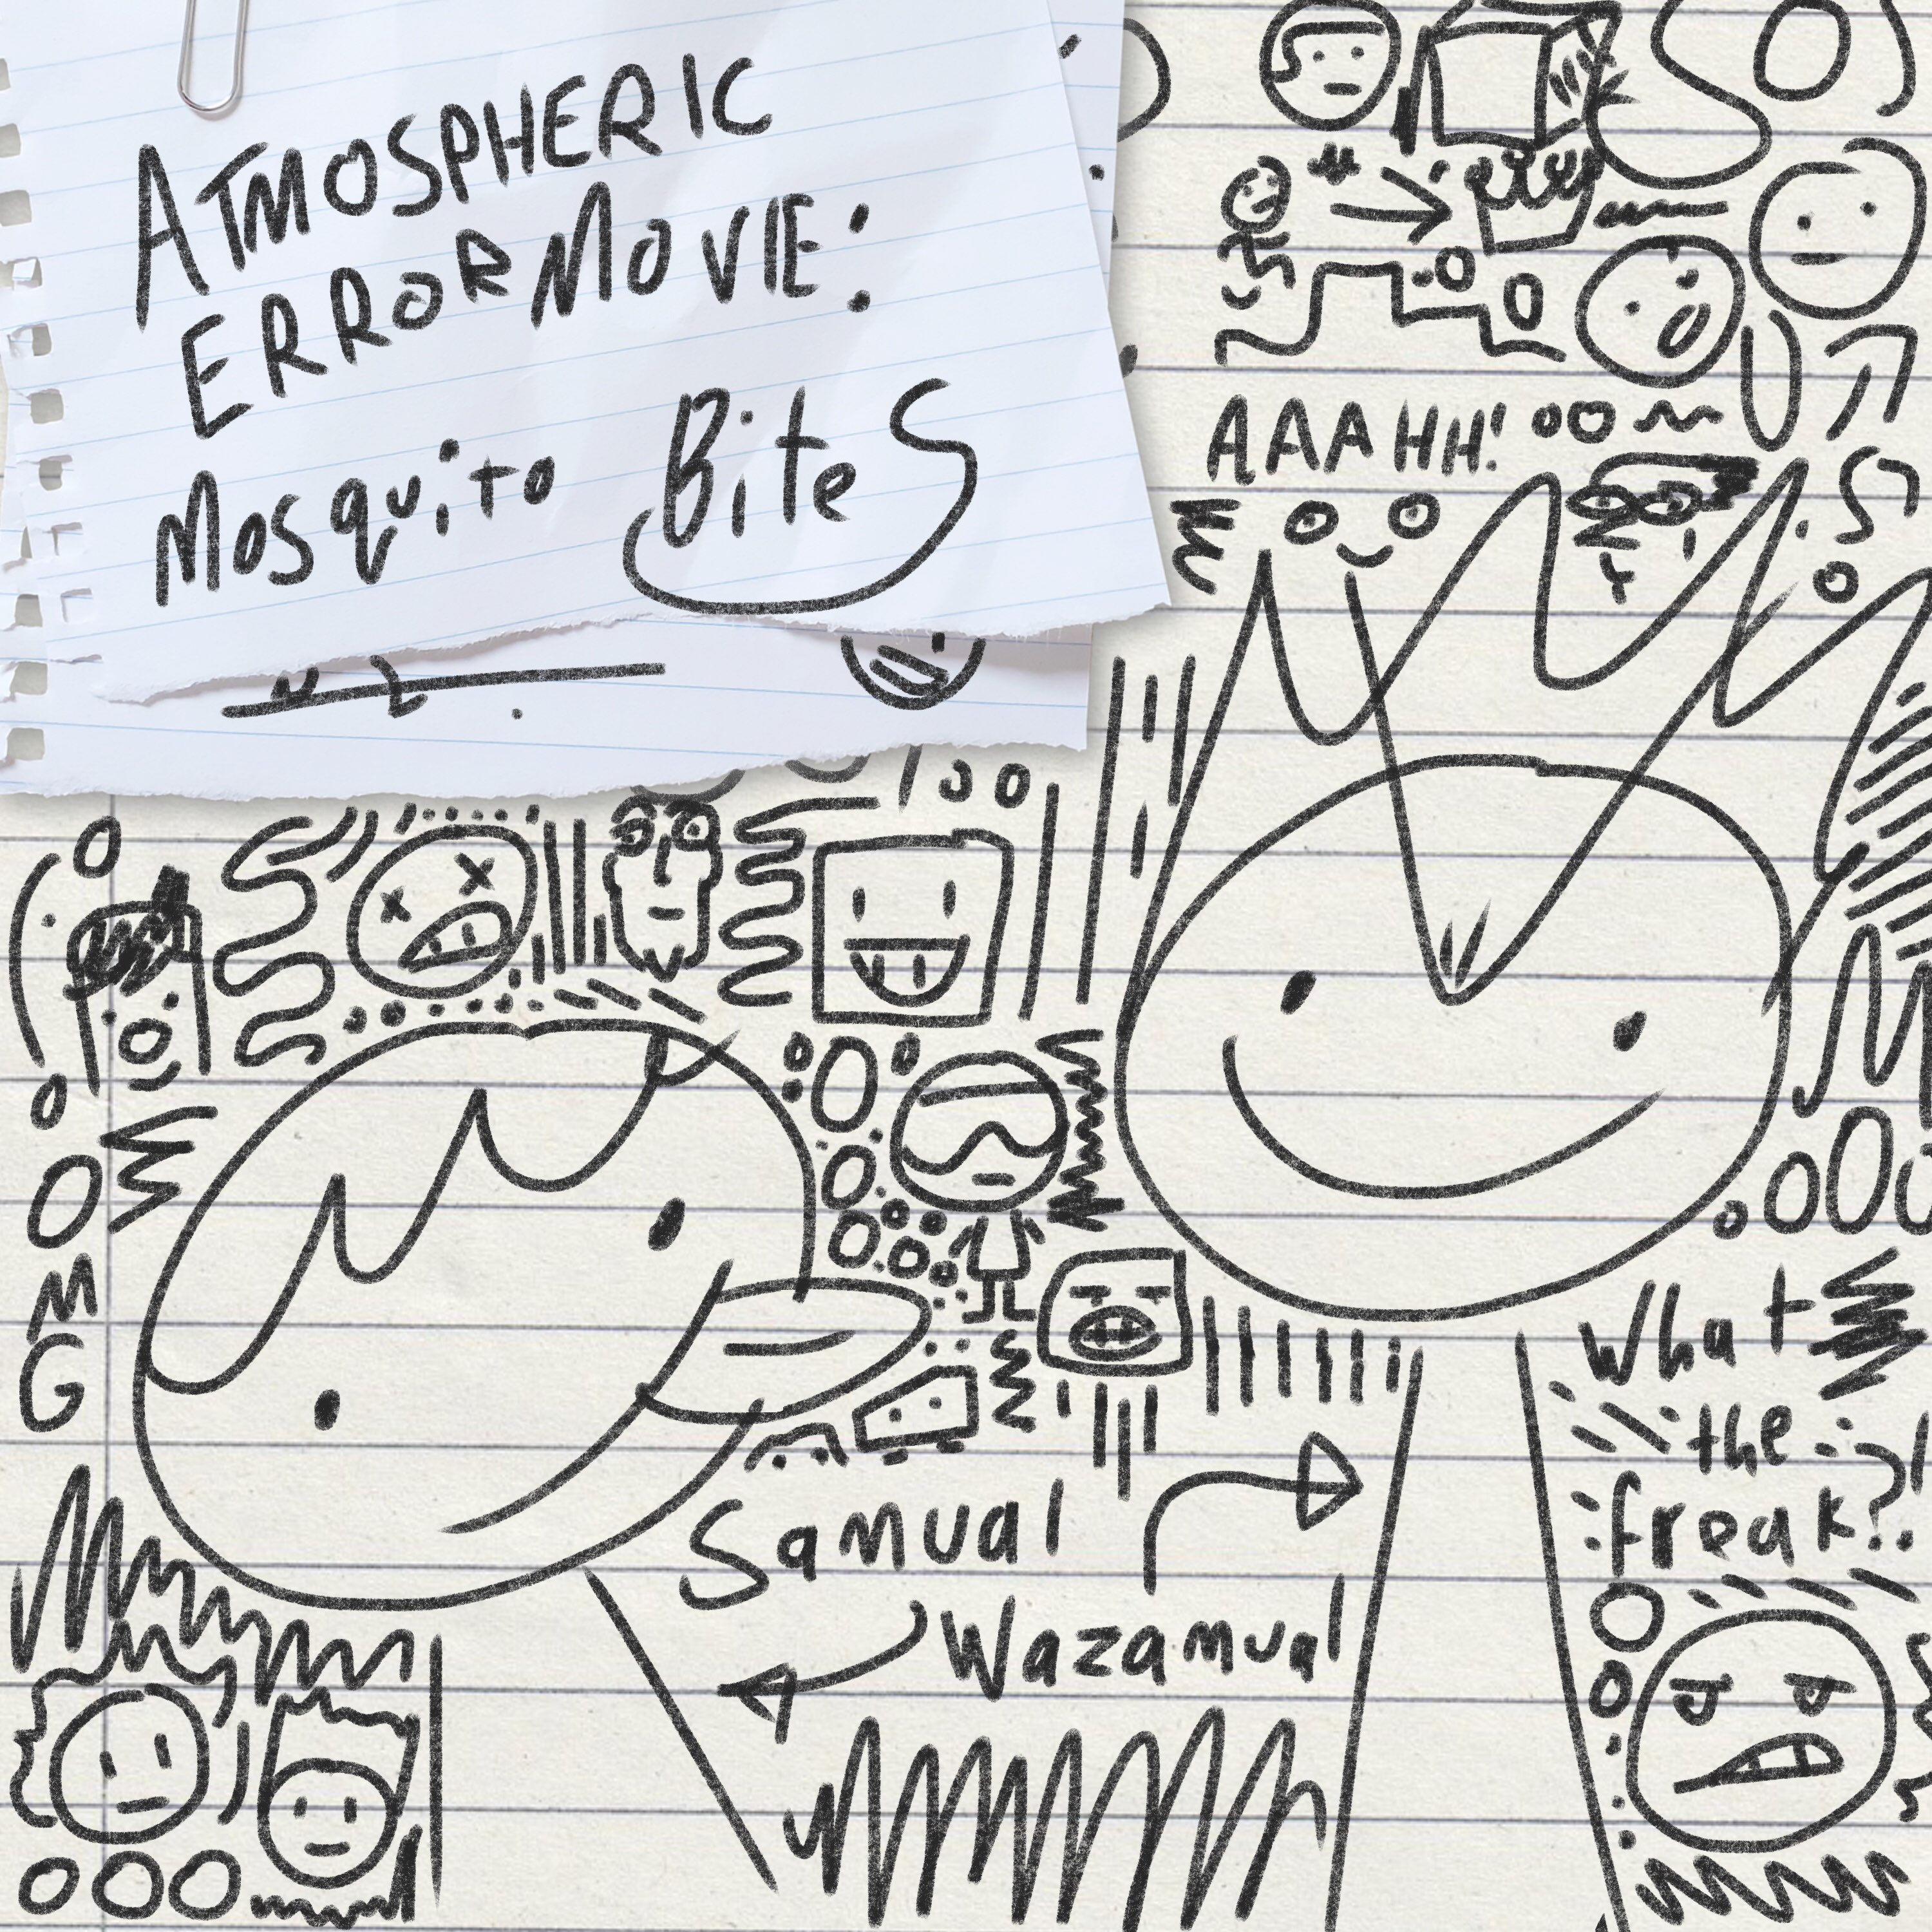 ATMOSPHERIC
ERROR MOVIE:
Mosquito BiteS
AAAHH!
OMG
What
the
freak?!
Samual
Wazamual